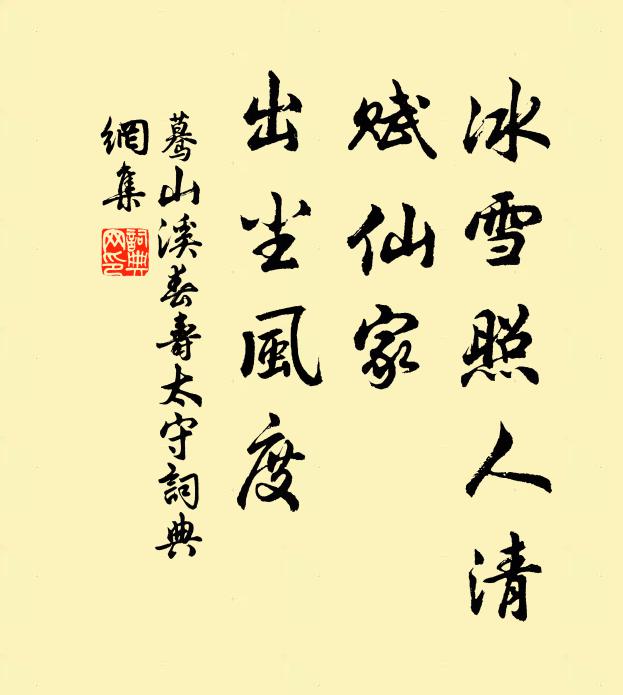 冰雪照人清
赋仙家
出尘風度
驀山溪春壽太守詞典
網集
詞典
网印